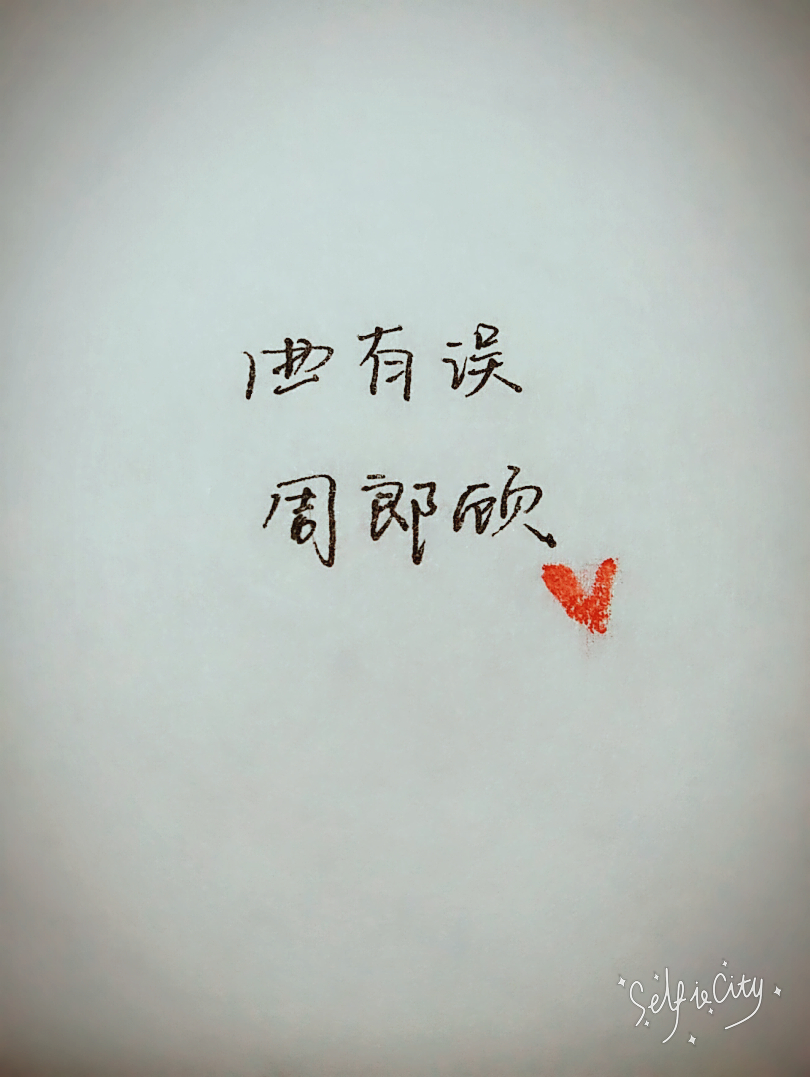 曲有误
周郎顾
SelfieCity